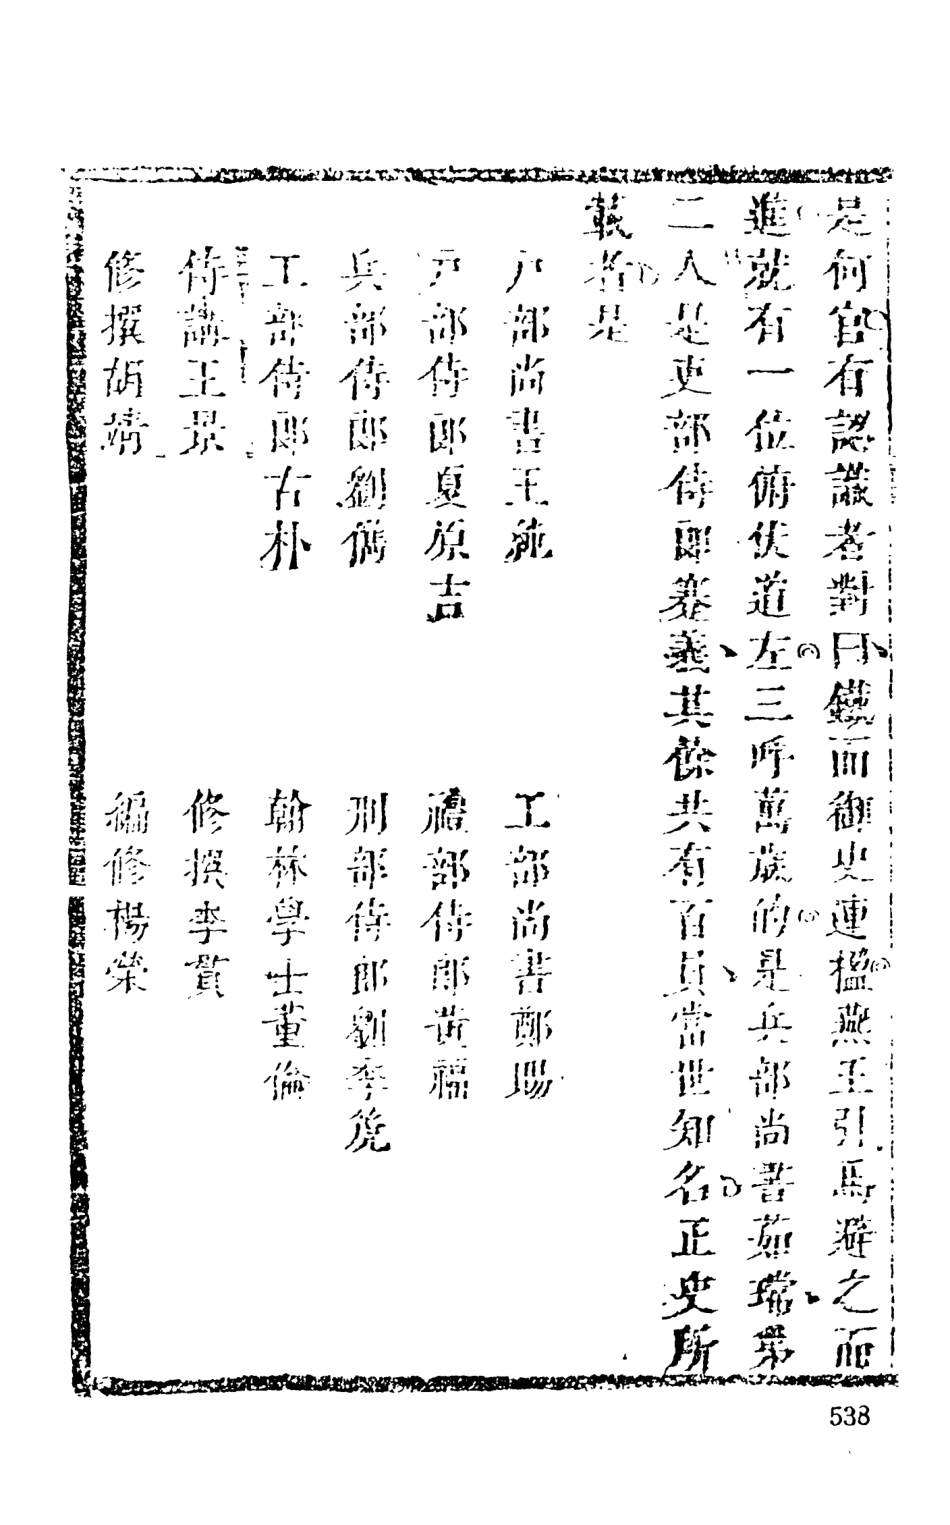 是何官有認識者對曰鐵面御史連楹燕王引馬避之而
進就有一位俯伏道左三呼萬歲的是兵部尚書茹瑺第
二人是吏部侍郎蹇義其餘共有百員當世知名正史所
載者是
戶部尚書王純 工部尚書鄭賜
戶部侍郎夏原吉 禮部侍郎黃福
兵部侍郎劉儁 刑部侍郎劉季箎
工部侍郎古朴 翰林學士董倫
侍講王景 修撰李貫
修撰胡靖 編修楊榮
538